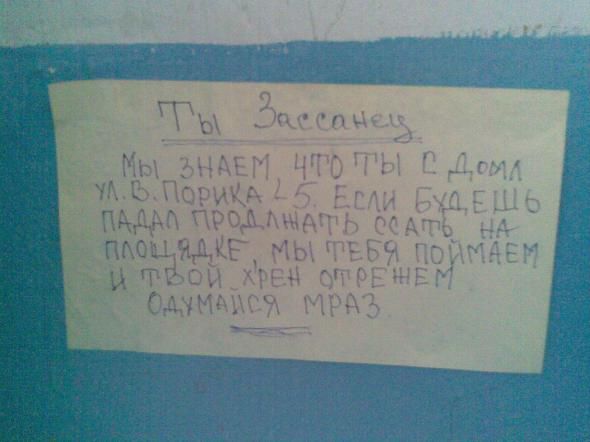 Ты Зассанец
МЫ ЗНАЕМ, ЧТО ТЫ С ДОМА
УЛ. В. ПОРИКА 5. ЕСЛИ БУДЕШЬ
ПАДАЛ ПРОДЛЖАТЬ ССАТЬ НА
ПЛОЩЯДКЕ, МЫ ТЕБЯ ПОЙМАЕМ
И ТВОЙ ХРЕН ОТРЕЖЕМ
ОДУМАЙСЯ МРАЗ